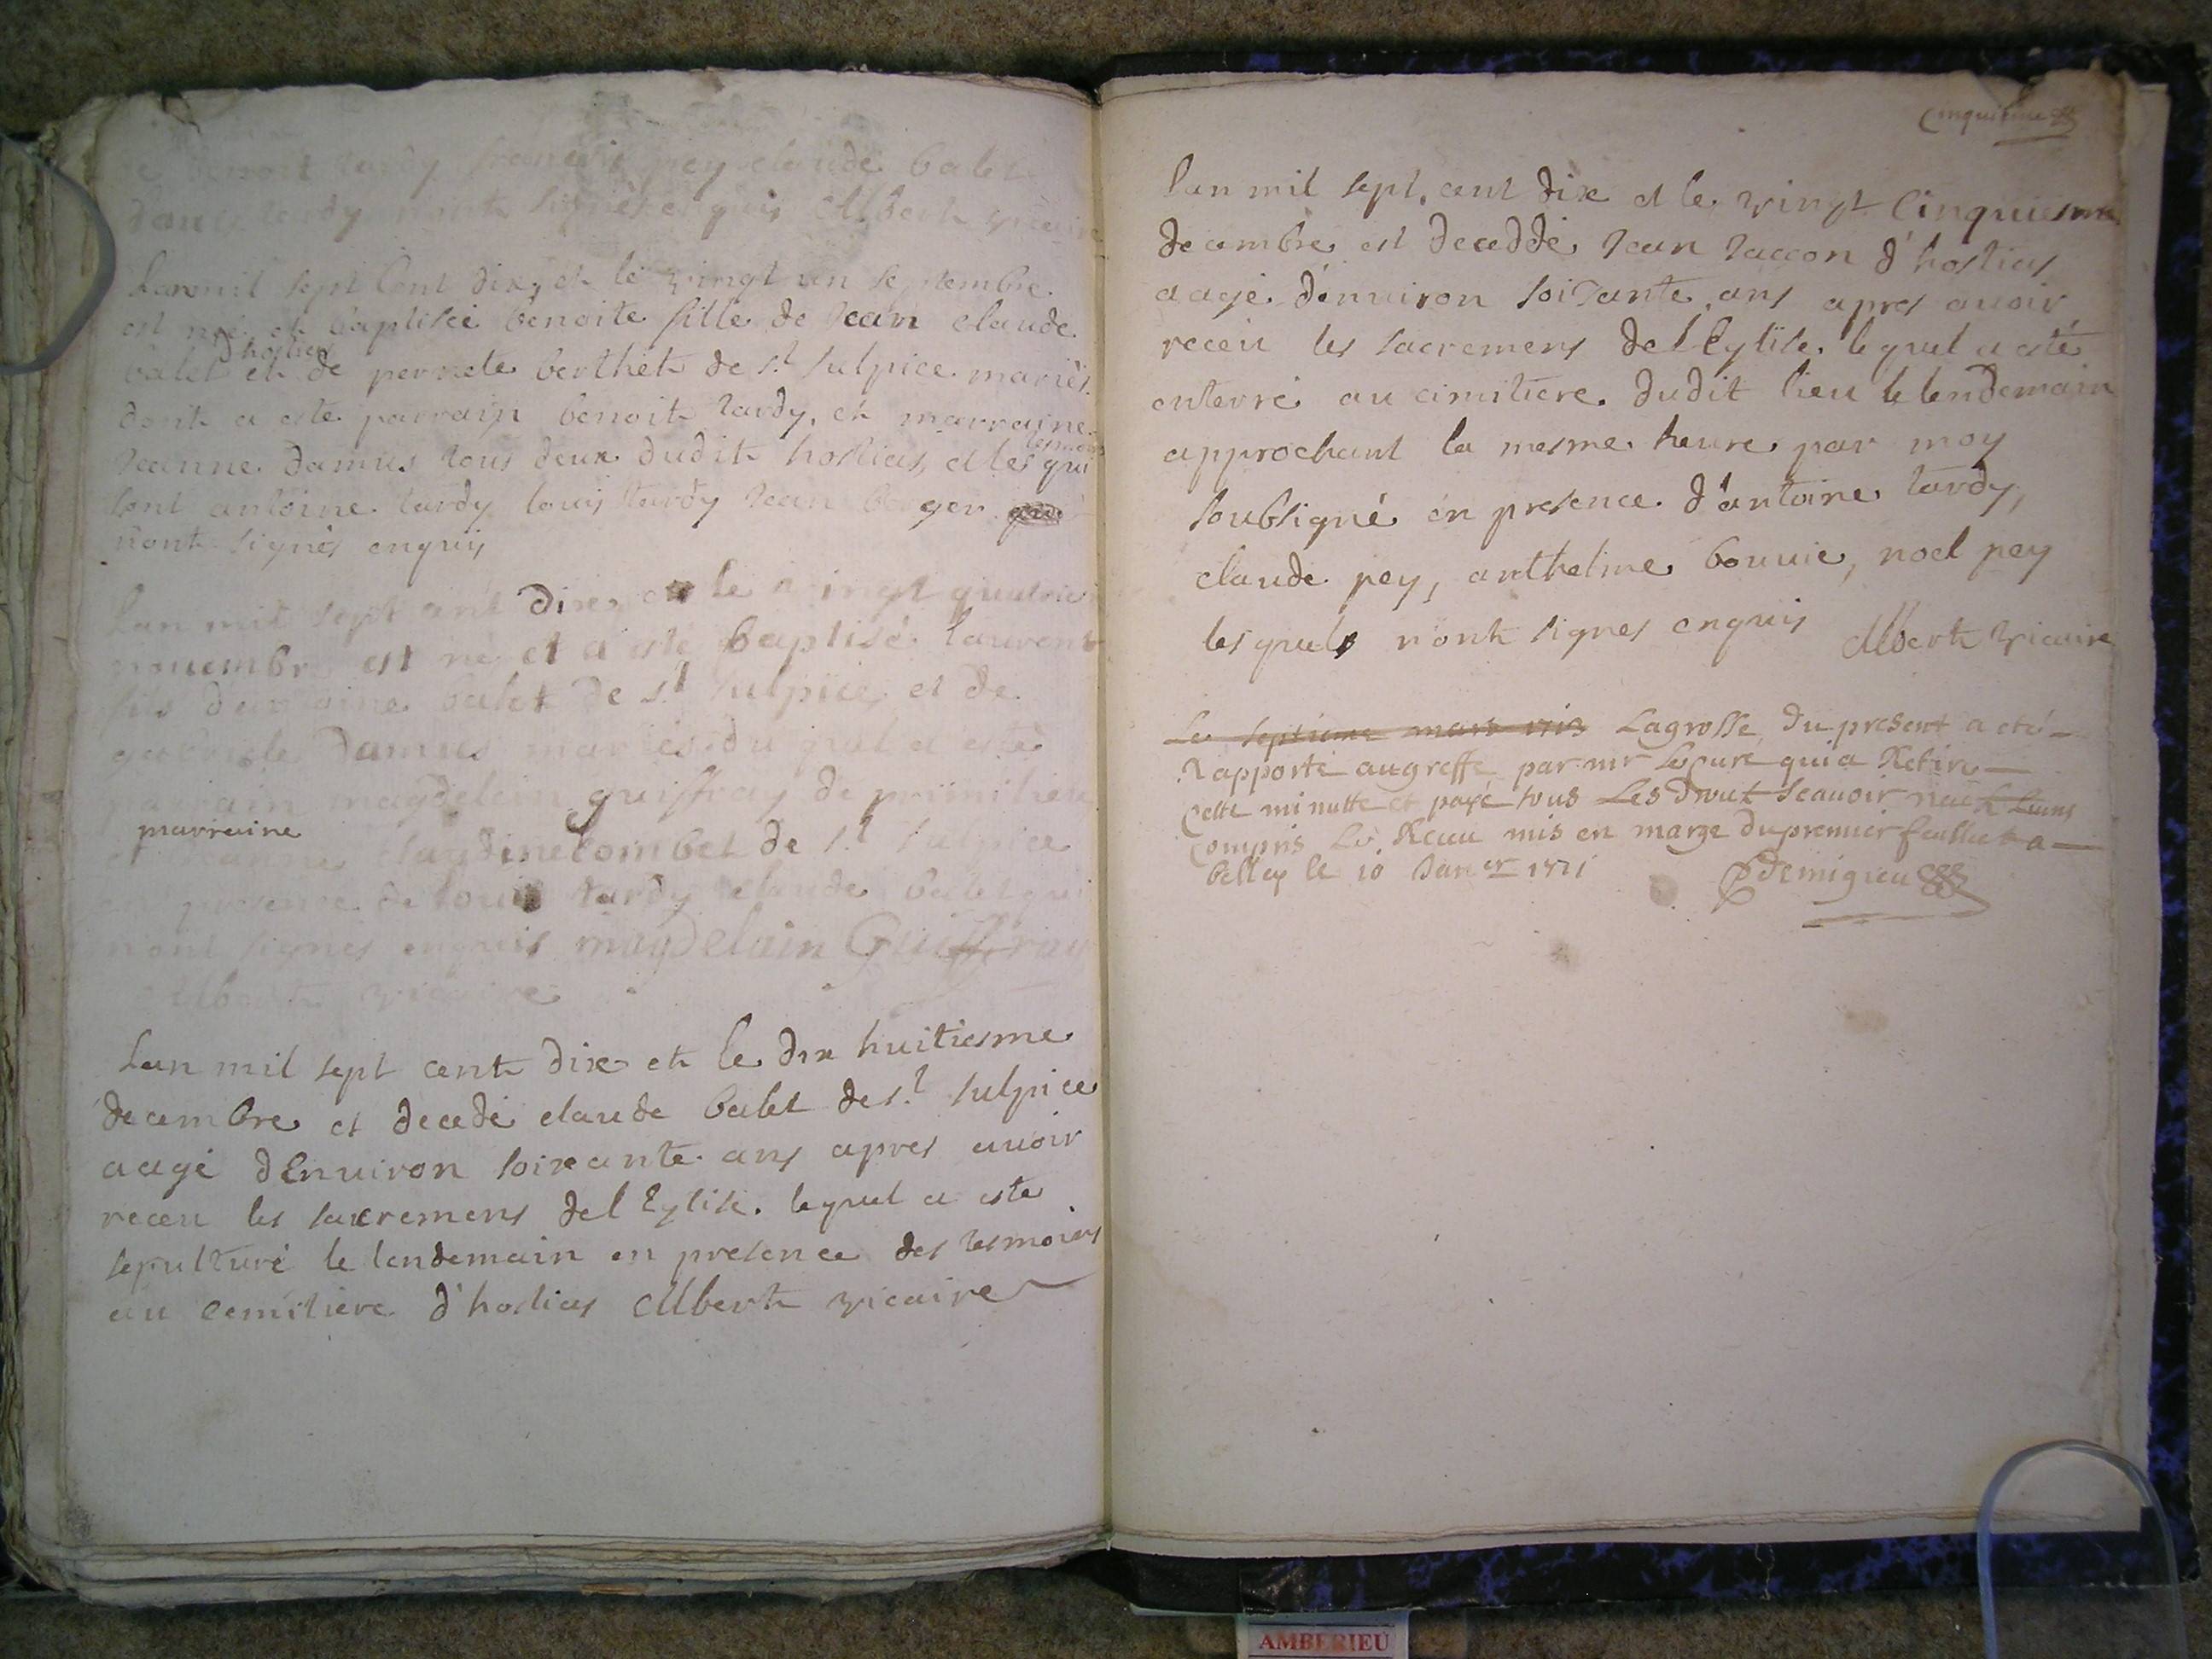 benoit tardy francois pey claude balet
louis tardy nont signés enquis Albert vicaire
Lan mil sept Cent dix, et le vingt un septembre
est née et baptisée benoite fille de Jean claude
d'hostias
balet et de pernete berthet de st sulpice mariés
dont a esté parrain benoit tardy, et marraine
tesmoins
Jeanne damus tous deux dudit hostias, et les qui
sont antoine tardy louis tardy Jean berger
nont signés enquis
Lan mil sept cent dix, et le vingt quatrie
nouembre est né et a esté baptisé laurent
fils dantoine balet de st sulpice, et de
gabriele Damus mariés du quel a esté
parrain magdelein guiffray de
marraine
claudine Combet de st sulpice
en presence de louis tardy claude balet qui
nont signés enquis magdelain Guiffray
Albert vicaire
Lan mil sept cent dix et le dix huitiesme
decembre et decedé claude balet de st sulpice
aagé dEnuiron soixante ans apres auoir
receu les sacremens del Eglise. lequel a esté
sepulturé le lendemain en presence des tesmoins
au cemitiere d'hostias Albert vicaire
Cinquieme
Lan mil sept, cent dix et le vingt Cinquiesme
decembre est decedde Jean Jaccon d'hostias
aagé d'enuiron soisante ans apres auoir
receu les sacremens del Eglise. lequel a esté
enterré au cimitiere dudit lieu le lendemain
approchant la mesme heure par moy
soubsigné en presence d'antoine tardy,
claude pey, anthelme bouuie, noel pey
lesquels nont signes enquis Albert vicaire
Le septieme mars 1713 Lagrosse du present a eté
Rapporté augreffe par mr Le curé quia Retiré
Cette minutte et payé tous Les Droit Scauoir
Compris Le Receu mis en marge dupremier feullet a
belley le 10 Janer 1711 Demigieu
AMBERIEU